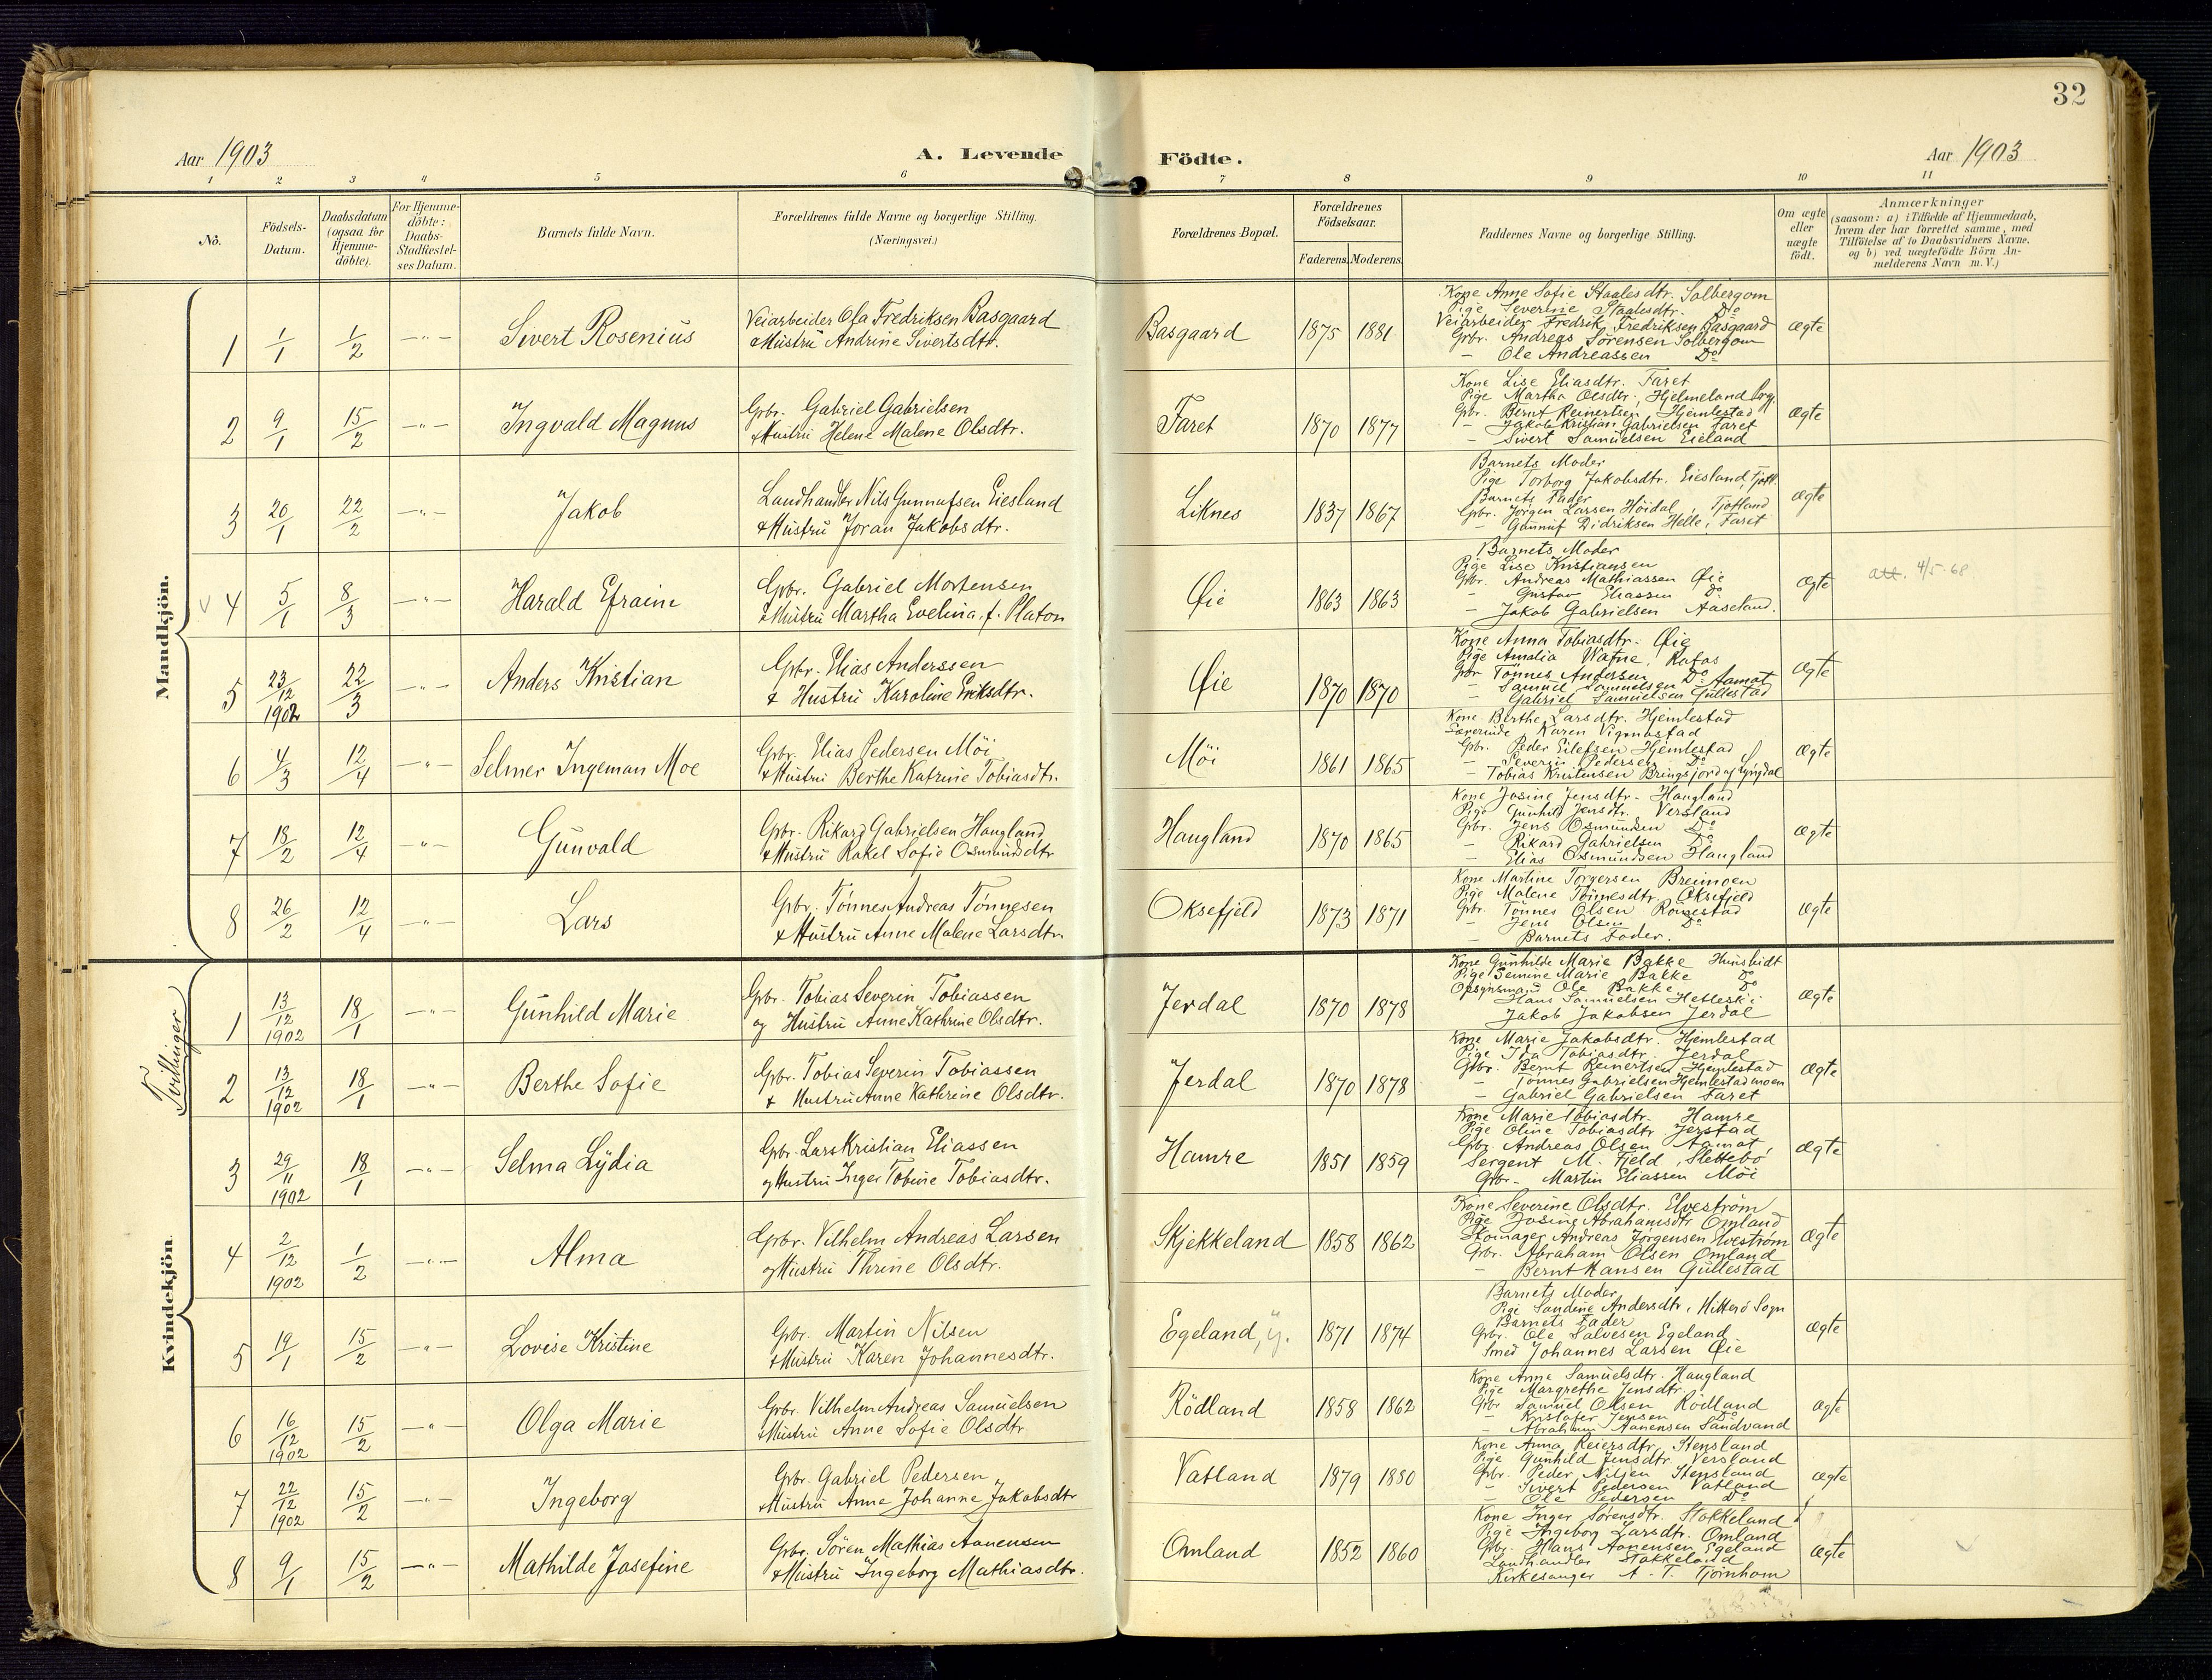 32
Aar 1903
A. Levende Födte.
Aar 1903
1 2 3 4 5 6 7 8 9 10 11
No.
Födsels-Datum.
Daabsdatum (ogsaa for Hjemme-döbte).
For Hjemme-döbte: Daabs-Stadfæstel-ses Datum.
Barnets fulde Navn.
Forældrenes fulde Navne og borgerlige Stilling. (Næringsvei.)
Forældrenes Bopæl.
Forældrenes Födselsaar.
Faderens. Moderens.
Faddernes Navne og borgerlige Stilling.
Om ægte eller uægte födt.
Anmærkninger
(saasom: a) i Tilfælde af Hjemmedaab, hvem der har forrettet samme, med Tilföielse af to Daabsvidners Navne, og b) ved uægtefödte Börn Anmelderens Navn m. V.)
Mandkjön.
1 1/1 1/2 —"— Sivert Rosenius
Veiarbeider Ola Fredriksen Basgaard
& Hustru Andrine Sivertsdtr.
Basgaard 1875 1881
Kone Anne Sofie Staalesdtr. Solbergom
Pige Severine Staalesdtr. Do
Veiarbeider Fredrik Fredriksen Basgaard
Grbr. Andreas Sørensen Solbergom
— Ole Andreassen Do
Ægte
2 9/1 15/2 —"— Ingvald Magnus
Grbr. Gabriel Gabrielsen
& Hustru Helene Malene Olsdtr.
Faret 1870 1877
Kone Lise Eliasdtr. Faret
Pige Martha Olsdtr., Hjelmeland
Grbr. Bernt Reinertsen Hjemlestad
— Jakob Kristian Gabrielsen Faret
— Sivert Samuelsen Eieland
Ægte
3 20/1 22/2 —"— Jakob
Landhandler Nils Gunnufsen Eiesland
& Hustru Joran Jakobsdtr.
Liknes 1837 1867
Barnets Moder
Pige Torborg Jakobsdtr. Eiesland, Fjotl.
Barnets Fader
Grbr. Jørgen Larsen Høidal, Fjotland
— Gunnuf Didriksen Helle, Faret
Ægte
4 5/1 8/3 —"— Harald Efraim
Grbr. Gabriel Mortensen
& Hustru Martha Evelina, f. Platon
Øie 1863 1863
Barnets Moder
Pige Lise Kristiansen
Grbr. Andreas Mathiassen Øie
— Gustav Eliassen Do
— Jakob Gabrielsen Aaseland.
Ægte
att. 4/5-68
5 23/12 1902 22/3 —"— Anders Kristian
Grbr. Elias Anderssen
& Hustru Karoline Eriksdtr.
Øie 1870 1870
Kone Anna Tobiasdtr. Øie
Pige Amalia Watne, Rafos
Grbr Tönnes Andersen Do
— Samuel Samuelsen Aamot
— Gabriel Samuelsen Gullestad
Ægte
6 4/3 12/4 —"— Selmer Ingeman Moe
Grbr. Elias Pedersen Möi
& Hustru Berthe Katrine Tobiasdtr.
Möi 1861 1865
Kone Berthe Larsdtr. Hjemlestad
Lærerinde Karen
Grbr. Peder Eilefsen Hjemlestad
— Severin Pedersen Do
— Tobias Kristensen Bringsjord af Lyngdal
Ægte
7 18/2 12/4 —"— Gunvald
Grbr. Rikard Gabrielsen Haugland
& Hustru Rakel Sofie Osmundsdtr
Haugland 1870 1865
Kone Josine Jensdtr. Haugland
Pige Gunhild Jensdtr. Versland
Grbr. Jens Osmundsen Do
— Rikard Gabrielsen Do
— Elias Osmundsen Haugland
Ægte
8 26/2 12/4 —"— Lars
Grbr. Tönnes Andreas Tönnesen
& Hustru Anne Malene Larsdtr.
Oksefjeld 1873 1871
Kone Martine Torgersen Breimoen
Pige Malene Tönnesdtr. Oksefjeld
Grbr. Tönnes Olsen Römestad
— Jens Olsen Do
— Barnets Fader.
Ægte
Tvillinger
Kvindekjön.
1 13/12 1902 18/1 —"— Gunhild Marie
Grbr. Tobias Severin Tobiassen
og Hustru Anne Kathrine Olsdtr.
Jerdal 1870 1878
Kone Gunhilde Marie Bakke
Pige Semine Marie Bakke Do
Opsynsmand Ole Bakke Do
Hans Samuelsen
Jakob Jakobsen Jerdal
Ægte
2 13/12 1902 18/1 —"— Berthe Sofie
Grbr. Tobias Severin Tobiassen
& Hustru Anne Kathrine Olsdtr.
Jerdal 1870 1878
Kone Marie Jakobsdtr. Hjemlestad
Pige Ida Tobiasdtr. Jerdal
Grbr. Bernt Reinertsen Hjemlestad
— Tönnes Gabrielsen Hjemlestadmoen
— Gabriel Gabrielsen Faret
Ægte
3 29/11 1902 18/1 —"— Selma Lydia
Grbr. Lars Kristian Eliassen
og Hustru Inger Tobine Tobiasdtr.
Hamre 1851 1859
Kone Marie Tobiasdtr. Hamre
Pige Oline Tobiasdtr Jerstad
Grbr. Andreas Olsen Aamot,
Sergent M. Fjeld, Slettebö
Grbr. Martin Eliassen Möi
Ægte
4 2/12 1902 1/2 —"— Alma
Grbr. Vilhelm Andreas Larsen
og Hustru Thrine Olsdtr.
Skjekkeland 1858 1862
Kone Severine Olsdtr. Elveström
Pige Josine Abrahamsdtr Omland
Skomager Andreas Jørgensen Elveström
Grbr. Abraham Olsen Omland
— Bernt Hansen Gullestad
Ægte
5 19/1 15/2 —"— Lovise Kristine
Grbr. Martin Nilsen
& Hustru Karen Johannesdtr.
Egeland, y. 1871 1874
Barnets Moder
Pige Sandine Andersdtr. Hitterö Sogn
Barnets Fader
Grbr. Ole Salvesen Egeland
Smed Johannes Larsen Øie
Ægte
6 16/12 1902 15/2 —"— Olga Marie
Grbr. Vilhelm Andreas Samuelsen
& Hustru Anne Sofie Olsdtr
Rödland 1858 1862
Kone Anne Samuelsdtr. Haugland
Pige Margrethe Jensdtr.
Grbr Samuel Olsen Rödland
— Kristofer Jensen Do
— Abraham Aanensen Sandvand
Ægte
7 22/12 1902 15/2 —"— Ingeborg
Grbr. Gabriel Pedersen
& Hustru Anne Johanne Jakobsdtr
Vatland 1879 1880
Kone Anna Reiersdtr. Stensland
Pige Gunhild Jensdtr Versland
Grbr. Peder Nilsen Stensland
— Sivert Pedersen Vatland
— Ole Pedersen Do
Ægte
8 9/1 15/2 —"— Mathilde Josefine
Grbr. Sören Mathias Aanensen
& Hustru Ingeborg Mathiasdtr.
Omland 1852 1860
Kone Inger Sørensdtr. Stakkeland
Pige Ingeborg Larsdtr. Omland
Grbr. Hans Aanensen Egeland
Landhandler Stakkeland
Kirkesanger A. T. Tjörnhom
Ægte